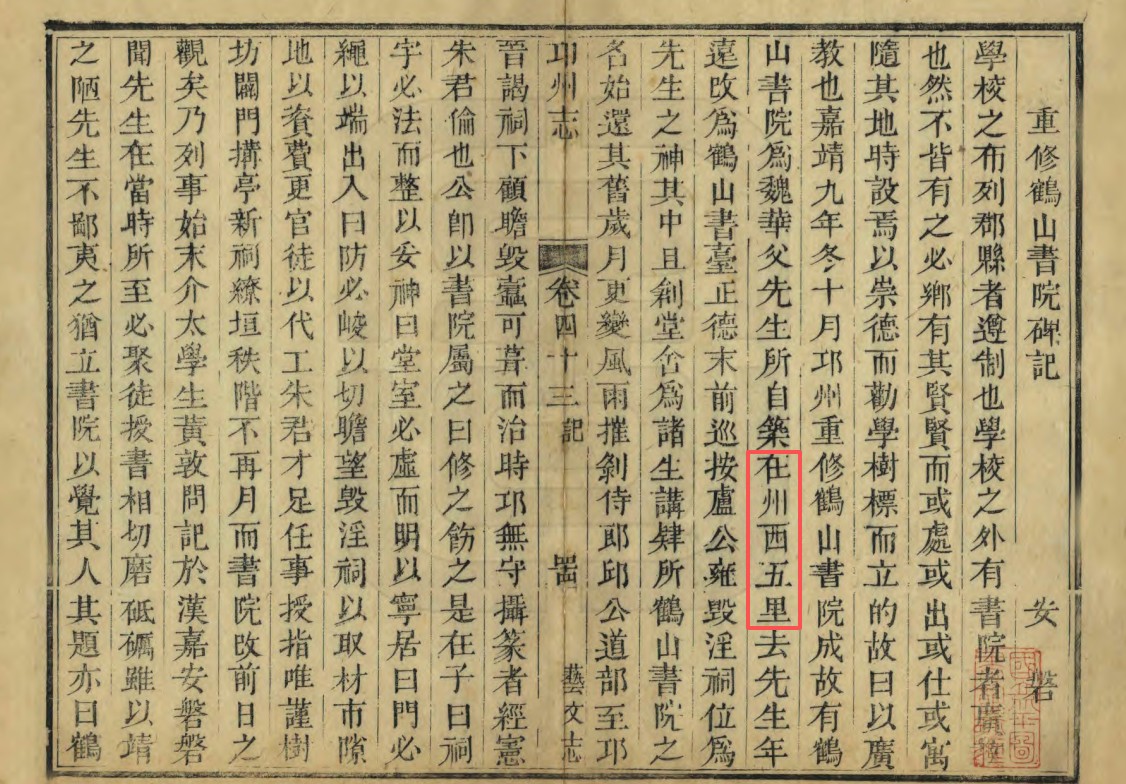 重修鶴山書院碑記 安磐
學校之布列郡縣者遵制也學校之外有書院者廣
也然不皆有之必鄉有其賢賢而或處或出或仕或寓
隨其地時設焉以崇德而勸學樹標而立的故曰以廣
教也嘉靖九年冬十月邛州重修鶴山書院成故有鶴
山書院爲魏華父先生所自築在州西五里去先生年
遠改爲鶴山書臺正德末前巡按盧公雍毀淫祠位爲
先生之神其中且創堂岔爲諸生講肄所鶴山書院之
名始還其舊歲月更變風雨摧剝侍郎邱公道部至邛
邛州志 卷四十三 記 藝文志
晉謁祠下顧瞻毀蠹可葺而治時邛無守攝篆者經憲
朱君倫也公卽以書院屬之曰修之飭之是在子曰祠
宇必法而整以妥神曰堂室必虛而明以寧居曰門必
繩以端出入曰防必峻以切瞻望毀淫祠以取材市隙
地以資費更官徒以代工朱君才足任事授指唯謹樹
坊闢門搆亭新祠繚垣秩階不再月而書院改前日之
觀矣乃列事始末介太學生黃敦問記於漢嘉安磐磐
聞先生在當時所至必聚徒授書相切磨砥礪雖以靖
之陋先生不鄙夷之猶立書院以覺其人其題亦曰鶴